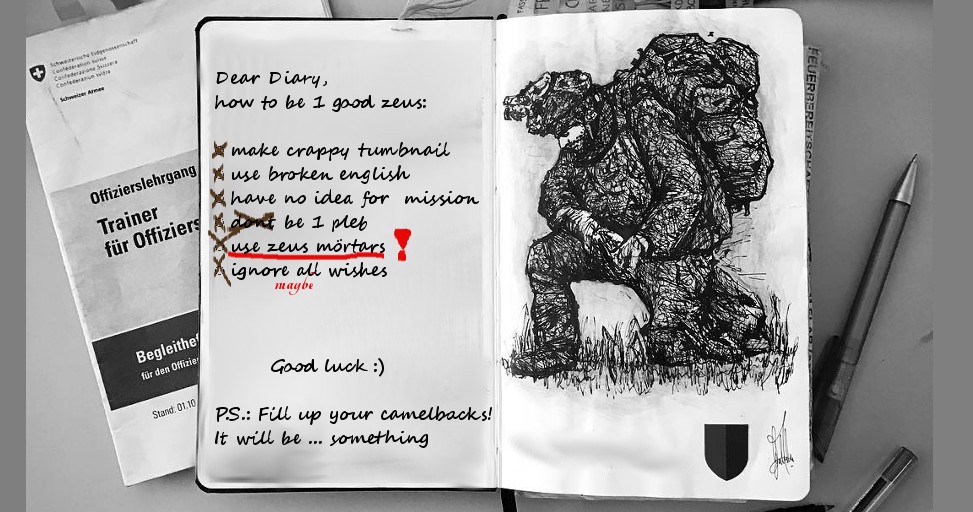 Schweizerische Eidgenossenschaft
Confédération suisse
Confederazione Svizzera
Confederaziun svizra
Schweizer Armee
Offizierslehrgang
Trainer
für Offiziers
Begleithef
für den Offizier
Stand: 01.10
Dear Diary,
how to be 1 good zeus:
make crappy tumbnail
use broken english
have no idea for mission
dont be 1 pleb
use zeus mörtars
ignore all wishes
maybe
Good luck :)
P.S.: Fill up your camelbacks!
It will be ... something
FEUERBEREITSCHA